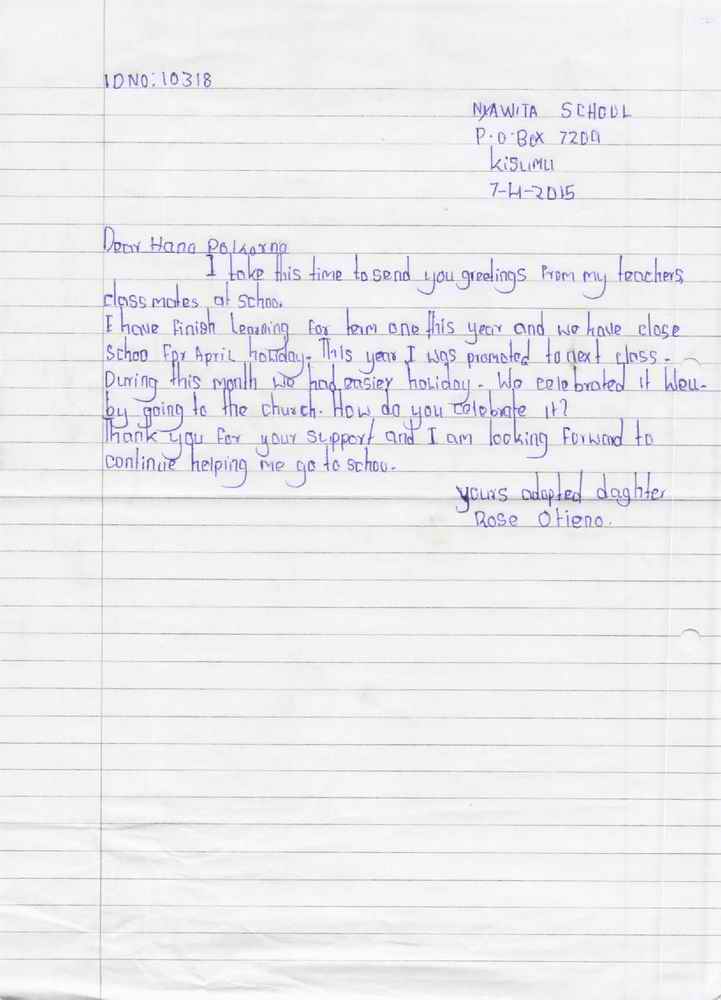 IDNO: 10318
NYAWITA SCHOOL
P.O.Box 7200
KISUMU
7-4-2015
Dear Hana Polkorna
I take this time to send you greetings from my teachers,
class mates at schoo.
I have finish learning for term one this year and we have close
schoo for April holiday. This year I was promoted to next class.
During this month we had easier holiday. We celebrated it well.
by going to the church. How do you celebrate it?
Thank you for your support and I am looking forward to
continue helping me go to schoo.
yours adopted daghter
Rose Otieno.